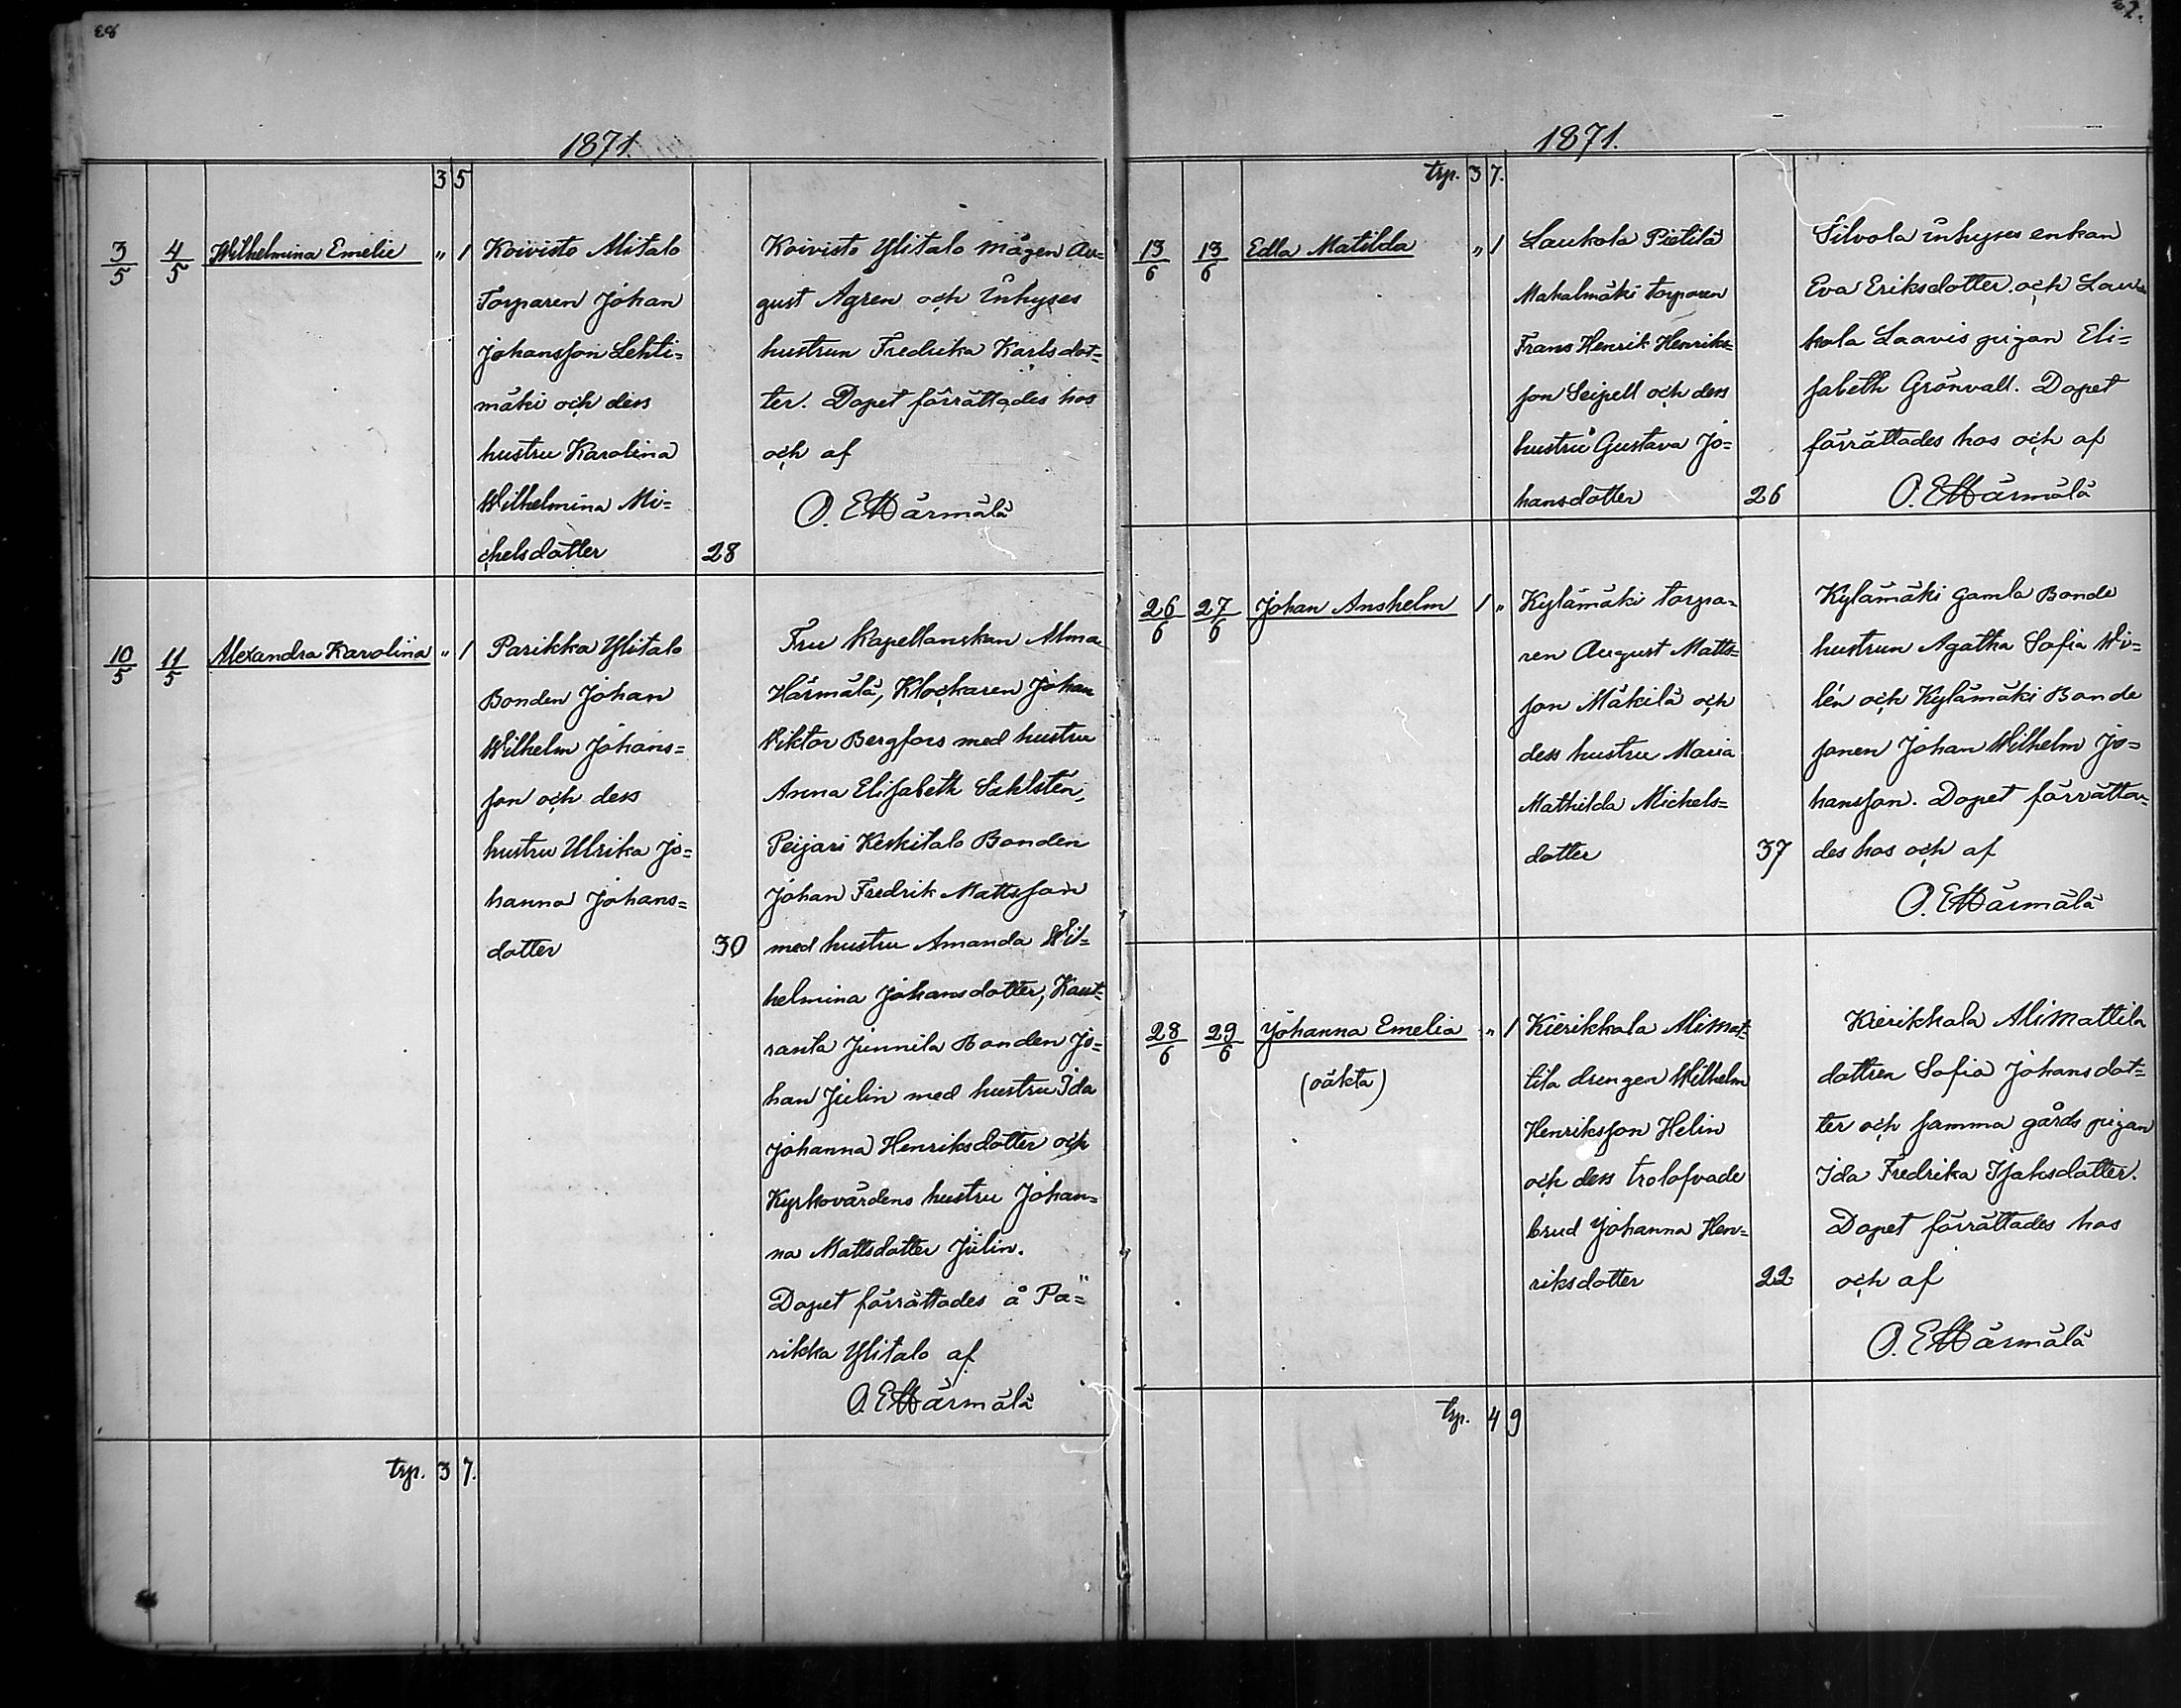 1871.
3 5
3/5 4/5 Wilhelmina Emelie " 1
Koivisto Alitalo
Torparen Johan
Johansson Lehti=
mäki och dess
hustru Karolina
Wilhelmina Mi=
chelsdotter 28
Koivisto Ylitalo mågen Au=
gust Agren och Inhyses
hustrun Fredrika Karlsdot=
ter. Dopet förrättades hos
och af
O. E Härmälä
10/5 11/5 Alexandra Karolina " 1
Parikka Ylitalo
Bonden Johan
Wilhelm Johans=
son och dess
hustru Ulrika Jo=
hanna Johans=
dotter 30
Fru Kapellanskan Alma
Härmälä, Klockaren Johan
Viktor Bergfors med hustru
Anna Elisabeth Sahlstén,
Peijari Keskitalo Bonden
Johan Fredrik Mattsson
med hustru Amanda Wil=
helmina Johansdotter, Kaut=
ranta Junnila Bonden Jo=
han Julin med hustru Ida
Johanna Henriksdotter och
Kyrkovärdens hustru Johan=
na Mattsdotter Julin.
Dopet förrättades å Pa=
rikka Ylitalo af
O. E Härmälä
trp. 3 7.
1871.
trp. 3 7.
13/6 13/6 Edla Matilda " 1
Laukola Pietilä
Mahalmäki torparen
Frans Henrik Henriks=
son Seipell och dess
hustru Gustava Jo=
hansdotter 26
Silvola inhyses enkan
Eva Eriksdotter och Lau=
kola Laavis pigan Eli=
sabeth Grönvall. Dopet
förrättades hos och af
O. E Härmälä
26/6 27/6 Johan Anshelm 1 "
Kylämäki torpa=
ren August Matts=
son Mäkilä och
dess hustru Maria
Mathilda Michels=
dotter 37
Kylämäki gamla Bonde
hustrun Agatha Sofia Wi=
lén och Kylämäki Bonde
sonen Johan Wilhelm Jo=
hansson. Dopet förrätta=
des hos och af
O. E Härmälä
28/6 29/6 Johanna Emelia " 1
(oäkta)
Kierikkala Alimat=
tila drengen Wilhelm
Henriksson Helin
och dess trolofvade
brud Johanna Hen=
riksdotter 22
Kierikkala AliMattila
dottren Sofia Johansdot=
ter och samma gårds pigan
Ida Fredrika Isaksdotter.
Dopet förrättades hos
och af
O. E Härmälä
trp. 4 9